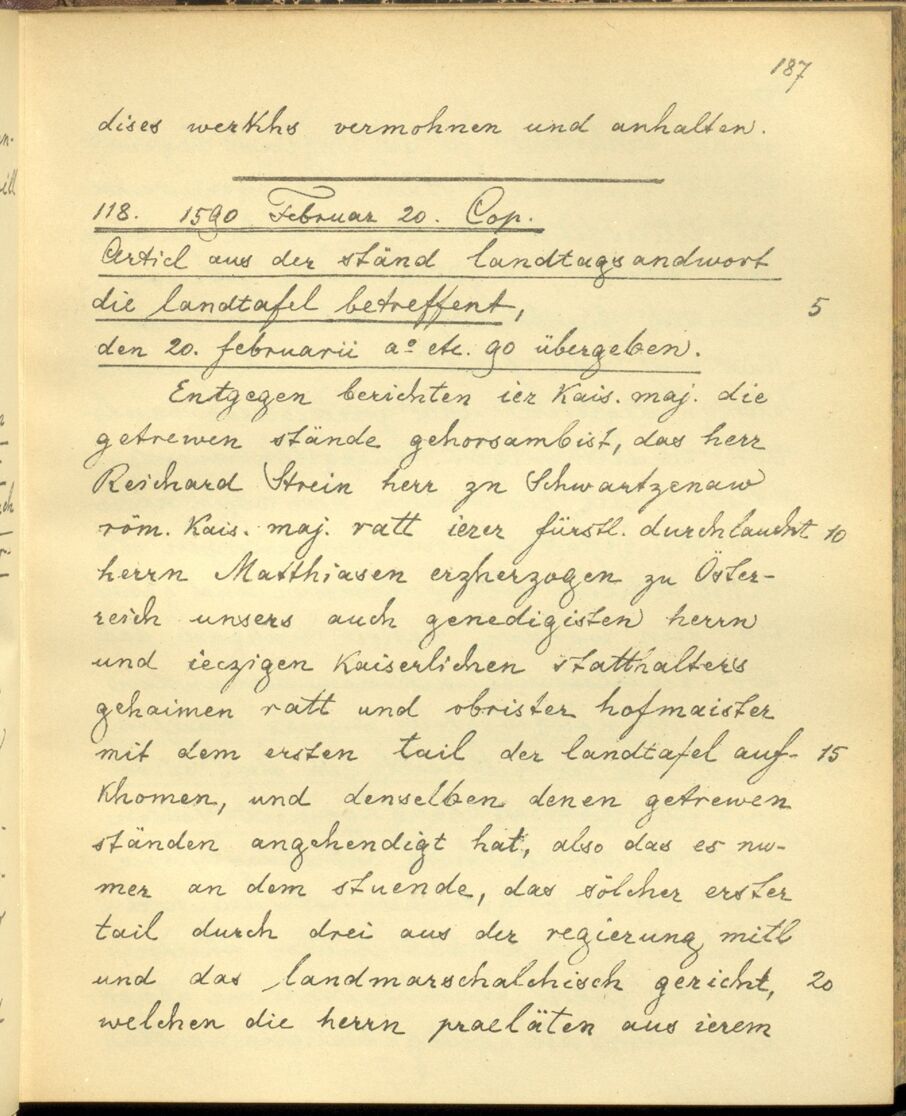 187
dises werkhs vermohnen und anhalten.
118. 1590 Februar 20. Cop.
Articl aus der ständ landtagsandwort
die landtafel betreffent, 5
den 20. februarii aº etc. 90 übergeben.
Entgegen berichten ier Kais. maj. die
getrewen stände gehorsambist, das herr
Reichard Strein herr zu Schwartzenaw
röm. Kais. maj. ratt ierer fürstl. durchlaucht 10
herrn Matthiasen erzherzogen zu Öster-
reich unsers auch genedigisten herrn
und ieczigen Kaiserlichen statthalters
gehaimen ratt und obrister hofmaister
mit dem ersten tail der landtafel auf- 15
Khomen, und denselben denen getrewen
ständen angehendigt hat, also das es nu-
mer an dem stuende, das sölcher erster
tail durch drei aus der regierung mitl
und das landmarschalchisch gericht, 20
welchen die herrn praeläten aus ierem